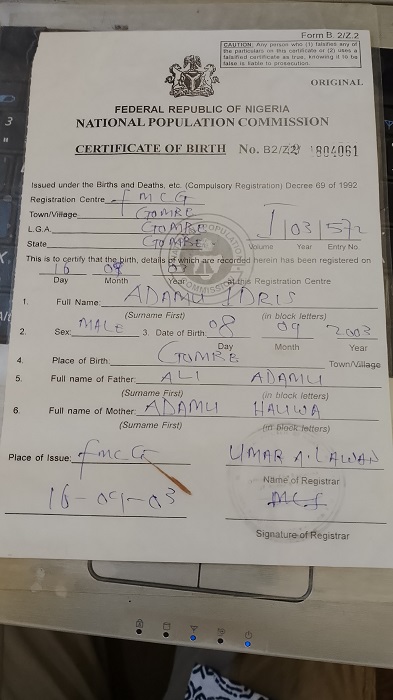 Form B. 2/Z.2
CAUTION: Any person who (1) falsifies any of
the particulars on this certificate or (2) uses a
falsified certificate as true, knowing it to be
false is liable to prosecution.
ORIGINAL
FEDERAL REPUBLIC OF NIGERIA
NATIONAL POPULATION COMMISSION
CERTIFICATE OF BIRTH No. B2/Z2/ 1804061
Issued under the Births and Deaths, etc. (Compulsory Registration) Decree 69 of 1992
Registration Centre FMCG
Town/Village GOMBE
L.G.A. GOMBE
State GOMBE
I 03 572
Volume Year Entry No.
This is to certify that the birth, details of which are recorded herein has been registered on
16 09 03 at this Registration Centre
Day Month Year
1. Full Name: ADAMU IDRIS
(Surname First) (in block letters)
2. Sex: MALE 3. Date of Birth: 08 09 2003
Day Month Year
4. Place of Birth: GOMBE Town/Village
5. Full name of Father: ALI ADAMU
(Surname First) (in block letters)
6. Full name of Mother: ADAMU
(Surname First) (in block letters)
Place of Issue: FMCG UMAR A. LAWAN
Name of Registrar
16-09-03
Signature of Registrar